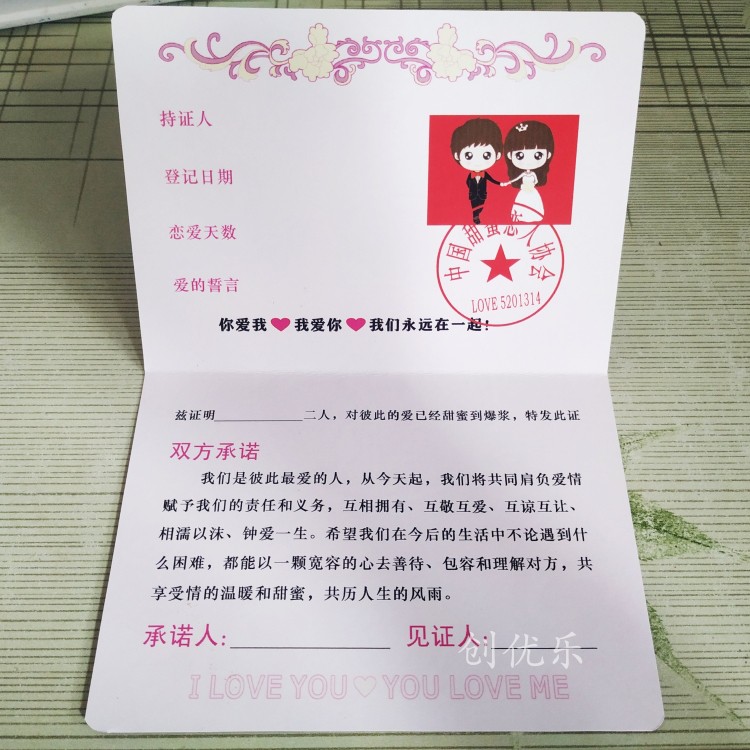 持证人
登记日期
恋爱天数
爱的誓言
中国甜蜜恋人协会
LOVE 5201314
你爱我❤我爱你❤我们永远在一起！
兹证明____________二人，对彼此的爱已经甜蜜到爆浆，特发此证
双方承诺
我们是彼此最爱的人，从今天起，我们将共同肩负爱情
赋予我们的责任和义务，互相拥有、互敬互爱、互谅互让、
相濡以沫、钟爱一生。希望我们在今后的生活中不论遇到什
么困难，都能以一颗宽容的心去善待、包容和理解对方，共
享受情的温暖和甜蜜，共历人生的风雨。
承诺人:____________ 见证人:____________
创优乐
I LOVE YOU♡YOU LOVE ME